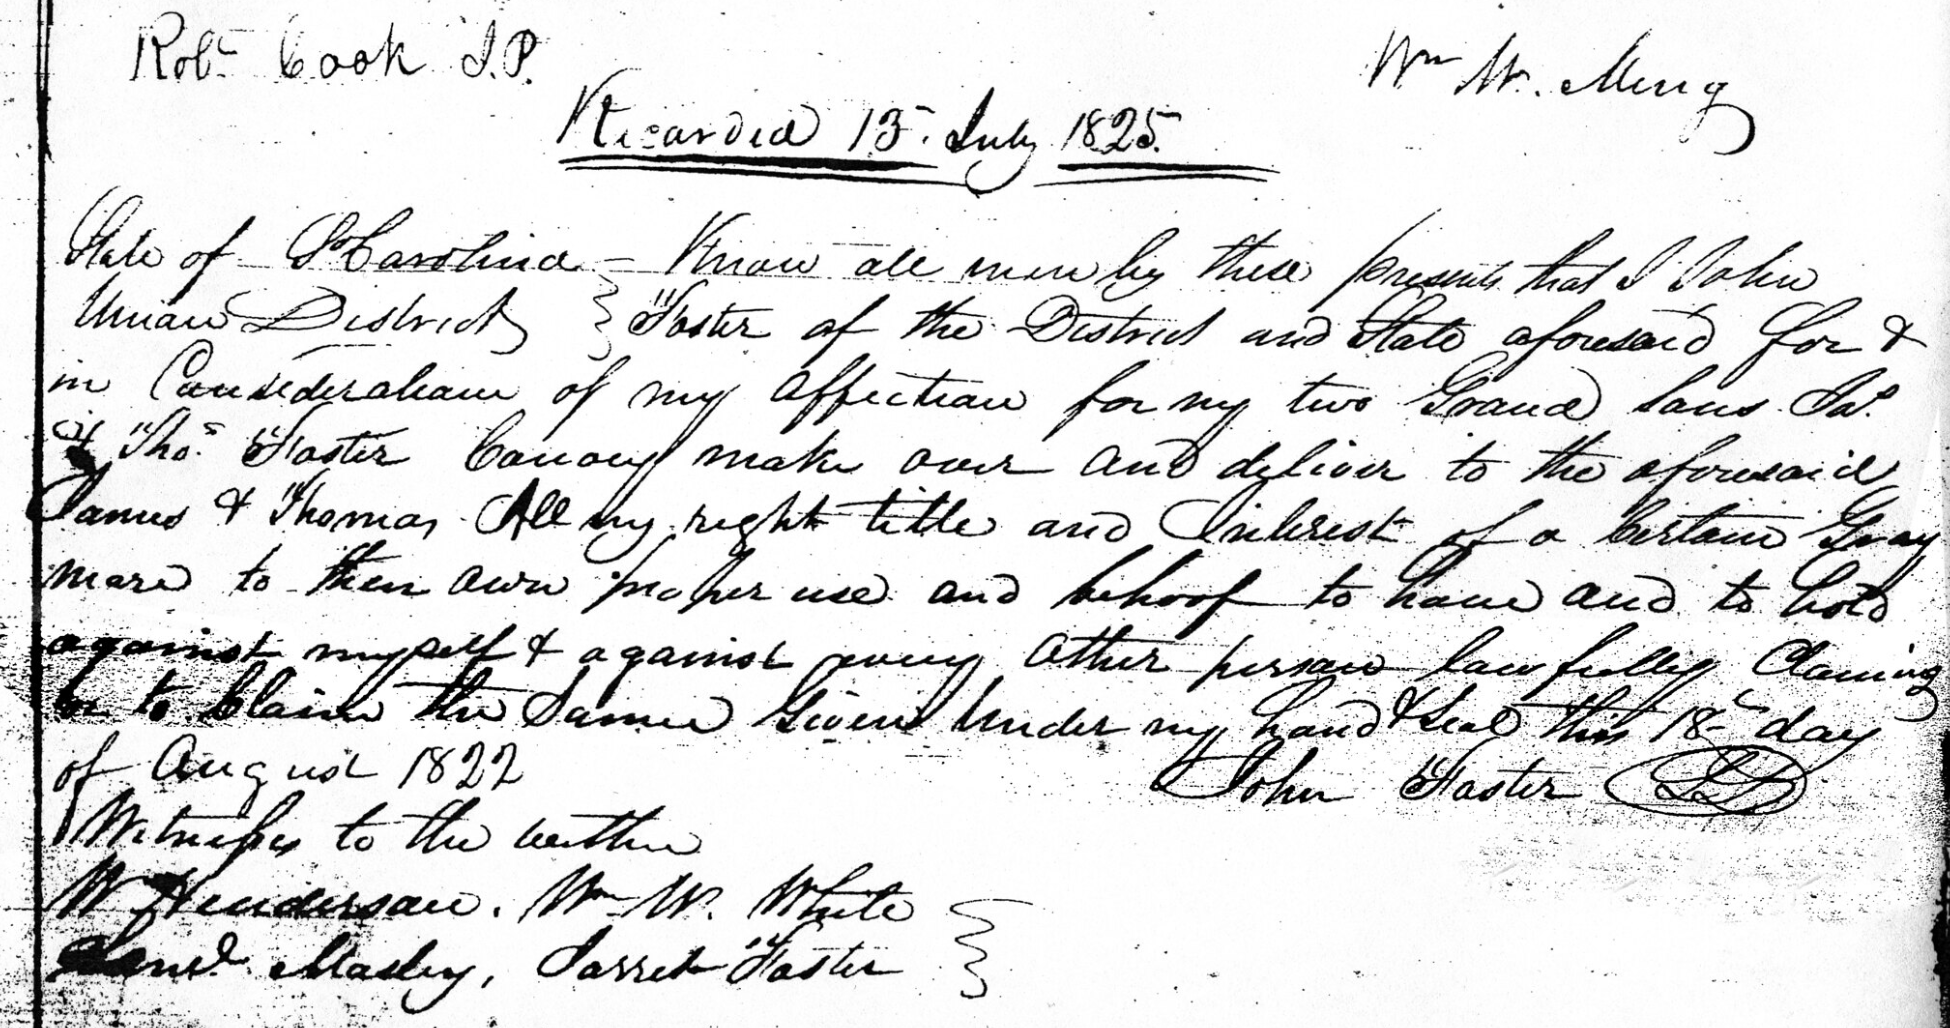 Robt Cook J.P. Wm W. Meng
Recorded 13 July 1825.
State of So Carolina – Know all men by these presents that I John
Union District } Foster of the District and State aforesaid for &
in Consideration of my affection for my two Grand sons Jas.
& Thos. Foster Convey make over and deliver to the aforesaid
James & Thomas All my right title and Interest of a Certain Gray
mare to their own proper use and behoof to have and to hold
against myself & against every other person lawfully Claiming
or to Claim the Same Given Under my hand & Seal this 18th day
of August 1822 John Foster
Witness to the within
W Henderson. Wm W. White
Mosley, Jarret Foster }